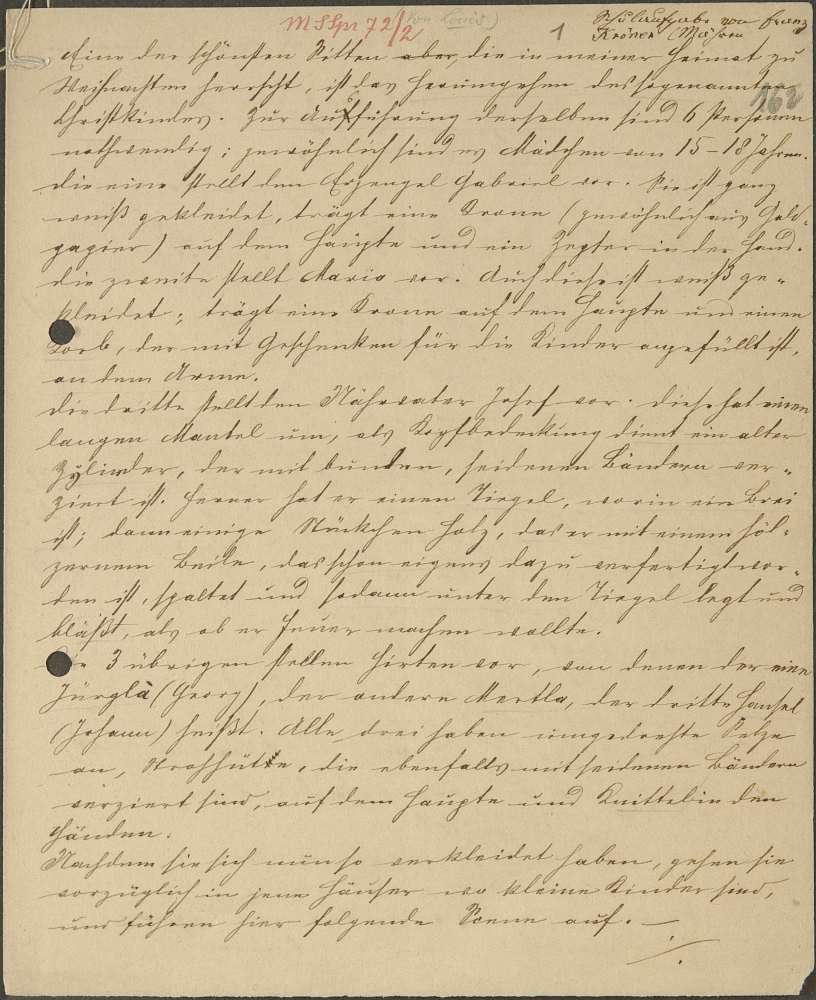 MSSpr 72/2
(von Louis)
1
Schulaufgabe von Franz
Kroner (Mähren
162
Eine der schönsten Sitten aber, die in meiner Heimat zu
Weihnachten herrscht, ist das Herumgehen des sogenannten
Christkindes. Zur Aufführung derselben sind 6 Personen
nothwendig; gewöhnlich sind es Mädchen von 15-18 Jahren.
Die eine stellt den Erzengel Gabriel vor. Sie ist ganz
weiß gekleidet, trägt eine Krone (gewöhnlich aus Gold-
papier) auf dem Haupte und ein Zepter in der Hand.
Die zweite stellt Maria vor. Auch diese ist weiß ge-
kleidet; trägt eine Krone auf dem Haupte und einen
Korb, der mit Geschenken für die Kinder angefüllt ist,
an dem Arme.
Die dritte stellt den Nährvater Josef vor. Diese hat einen
langen Mantel um, als Kopfbedeckung dient ein alter
Zylinder, der mit bunten, seidenen Bändern ver-
ziert ist. Ferner hat er einen Tiegel, worin ein Brei
ist; dann einige Stückchen Holz, das er mit einem höl-
zernem Beile, das schon eigens dazu verfertigt wor-
den ist, spaltet und sodann unter den Tiegel legt und
bläßt, als ob er Feuer machen wollte.
Die 3 übrigen stellen Hirten vor, von denen der eine
Jürgla (Georg), der andere Mertla, der dritte Hansel
(Johann) heißt. Alle drei haben umgedrehte Pelze
an, Strohhüte, die ebenfalls mit seidenen Bändern
verziert sind, auf dem Haupte und Knittel in den
Händen.
Nachdem sie sich nun so verkleidet haben, gehen sie
vorzüglich in jene Häuser wo kleine Kinder sind,
und führen hier folgende Scene auf. —
./.